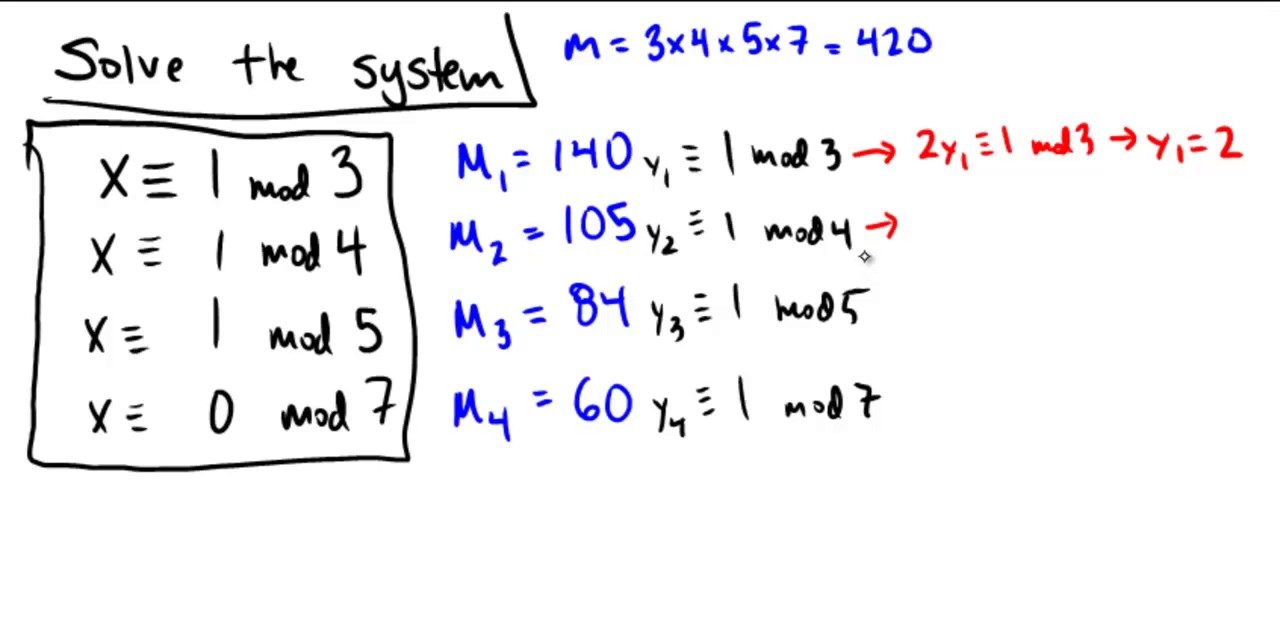 Solve the system
m = 3×4×5×7 = 420
x ≡ 1 mod 3
x ≡ 1 mod 4
x ≡ 1 mod 5
x ≡ 0 mod 7
M₁ = 140 y₁ ≡ 1 mod 3 → 2y₁ ≡ 1 mod 3 → y₁ = 2
M₂ = 105 y₂ ≡ 1 mod 4 →
M₃ = 84 y₃ ≡ 1 mod 5
M₄ = 60 y₄ ≡ 1 mod 7